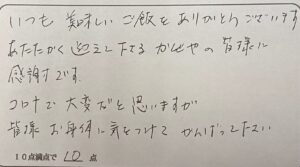 いつも 美味しい ご飯を ありがとうございます
あたたかく 迎えて下さる かぜやの 皆様に
感謝です。
コロナで 大変だと 思いますが
皆様 お身体に 気をつけて がんばって下さい
10点満点で 10 点